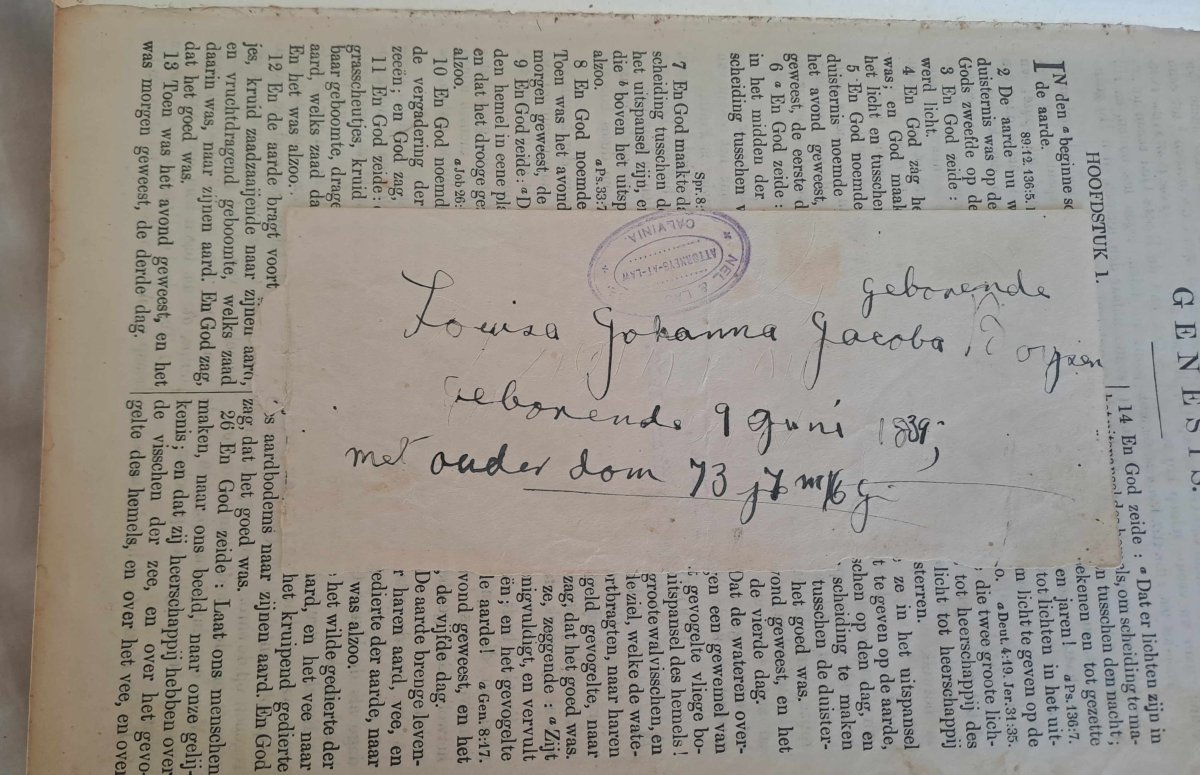 geborende
Louisa Johanna Jacoba
geborende 9 Juni 1839,
met ouder dom 73
NEL &
ATTORNEYS-AT-LAW
CALVINIA
GENESIS.
HOOFDSTUK 1.
IN den a beginne
de aarde.
89:12. 136:5.
2 De aarde nu
duisternis was op de
Gods zweefde op de
3 En God zeide :
werd licht.
4 En God zag
was ; en God
het licht en
5 En God noemde
duisternis noemde
het avond geweest,
geweest, de eerste
6 a En God zeide :
in het midden der
scheiding tusschen
Spr. 8:
7 En God maakte
scheiding tusschen
het uitspansel zijn,
die b boven het
alzoo. a Ps. 33:7
8 En God noemde
Toen was het avond
morgen geweest, de
9 En God zeide: a
den hemel in eene
en dat het drooge
alzoo. a Job 26:
10 En God
de vergadering der
zeeën; en God zag,
11 En God zeide:
grasscheutjes, kruid
baar geboomte,
aard, welks zaad
En het was alzoo.
12 En de aarde bragt voort
jes, kruid zaadzaaijende naar zijnen aard,
en vruchtdragend geboomte, welks zaad
daarin was, naar zijnen aard. En God zag,
dat het goed was.
13 Toen was het avond geweest, en het
was morgen geweest, de derde dag.
14 En God zeide : a Dat er lichten zijn in
om scheiding te ma-
tusschen den nacht;
teekenen en tot gezette
en jaren! a Ps. 136:7.
tot lichten in het uit-
licht te geven op de
a Deut. 4:19. Jer. 31:35.
die twee groote lich-
tot heerschappij des
licht tot heerschappij
sterren.
ze in het uitspansel
te geven op de aarde,
op den dag, en
scheiding te maken
tusschen de duister-
het goed was.
geweest, en het
de vierde dag.
Dat de wateren over-
een gewemel van
gevogelte vliege bo-
uitspansel des hemels!
groote walvisschen, en
ziel, welke de wate-
bragten, naar haren
gevogelte, naar
zag, dat het goed was.
ze, zeggende : a Zijt
en vervult
en het gevogelte
aarde! a Gen. 8:17.
geweest, en het
de vijfde dag.
De aarde brenge leven-
haren aard, vee, en
gedierte der aarde, naar
was alzoo.
het wilde gedierte der
en het vee naar
het kruipend gedierte
aardbodems naar zijnen aard. En God
zag, dat het goed was.
26 En God zeide : Laat ons menschen
maken, naar ons beeld, naar onze gelij-
kenis; en dat zij heerschappij hebben over
de visschen der zee, en over het gevo-
gelte des hemels, en over het vee, en over